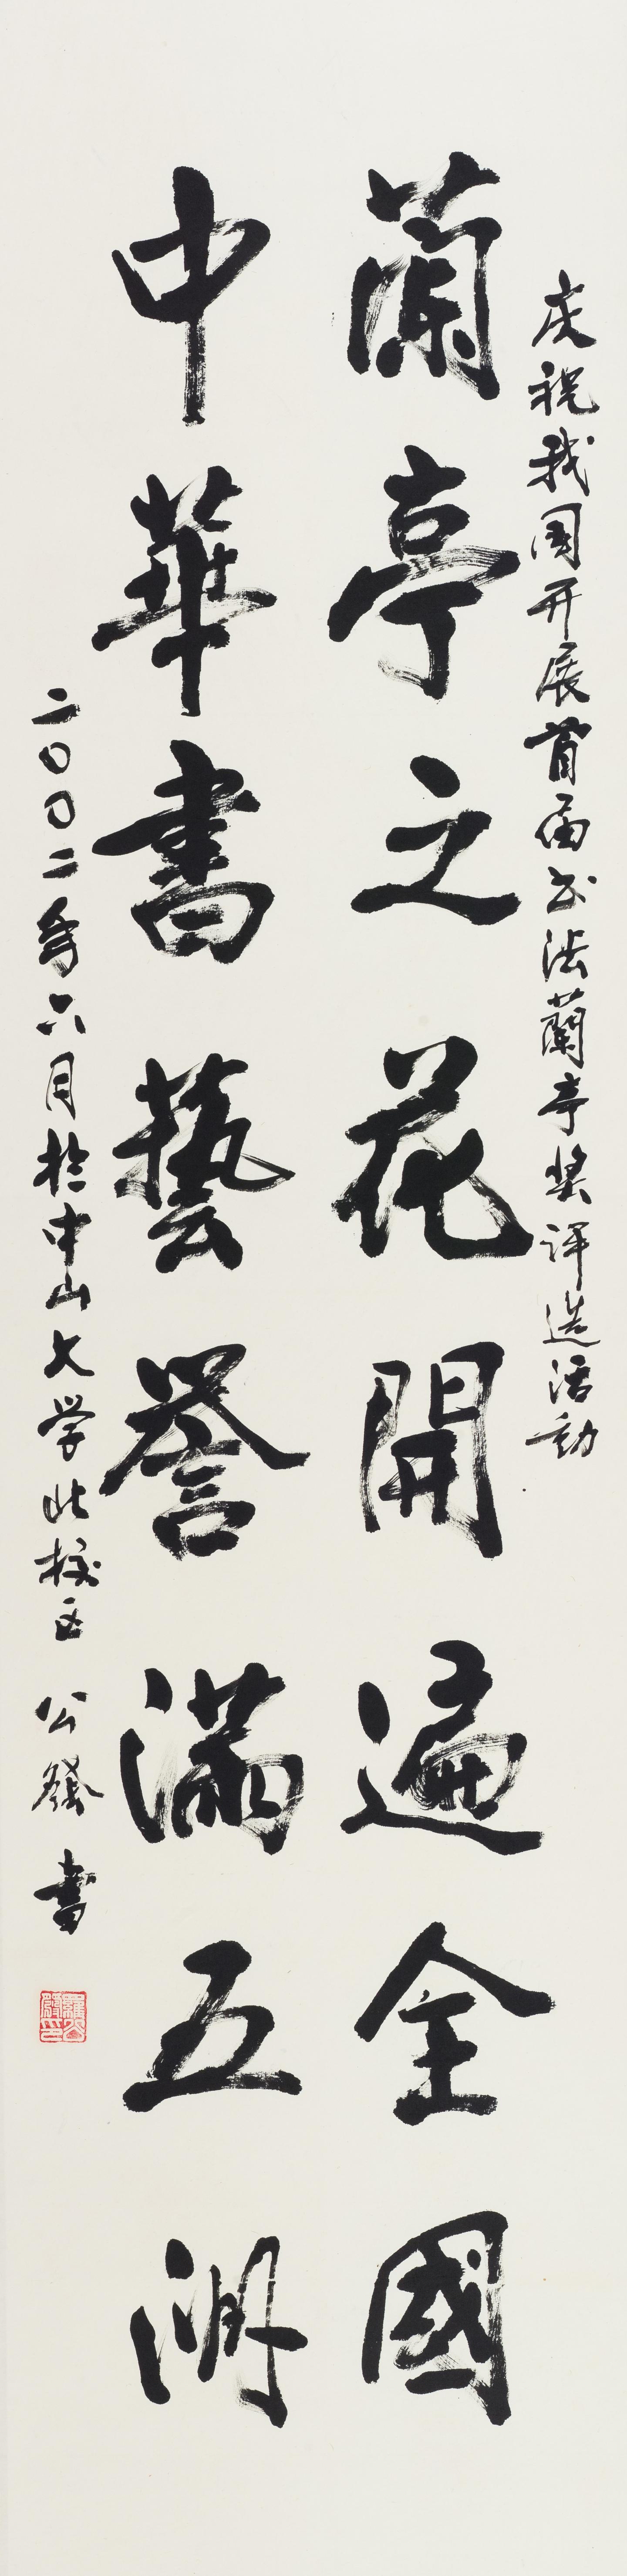 庆祝我国开展首届书法蘭亭奖评选活动
蘭亭之花開遍全國
中華書藝譽滿五洲
二〇〇二年六月於中山大学北校区 公發書